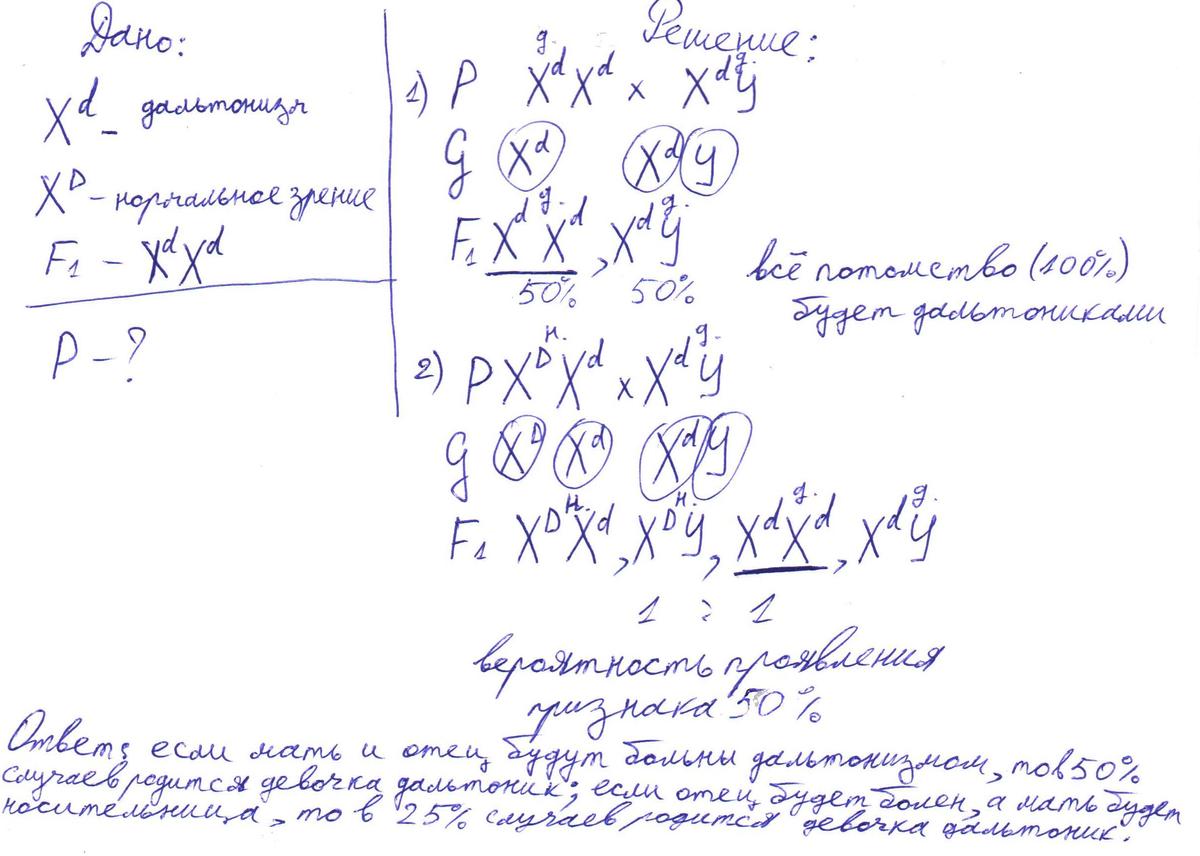 Дано:
X^d – дальтонизм
X^D – нормальное зрение
F₁ – X^dX^d
P – ?
Решение:
д. д.
1) P X^dX^d × X^dY
G X^d X^d Y
д. д.
F₁ X^dX^d, X^dY
50% 50%
всё потомство (100%)
будет дальтониками
н. д.
2) P X^DX^d × X^dY
G X^D X^d X^d Y
н. н. д. д.
F₁ X^DX^d, X^DY, X^dX^d, X^dY
1 : 1
вероятность проявления
признака 50%
Ответ: если мать и отец будут больны дальтонизмом, то в 50%
случаев родится девочка дальтоник; если отец будет болен, а мать будет
носительница, то в 25% случаев родится девочка дальтоник.